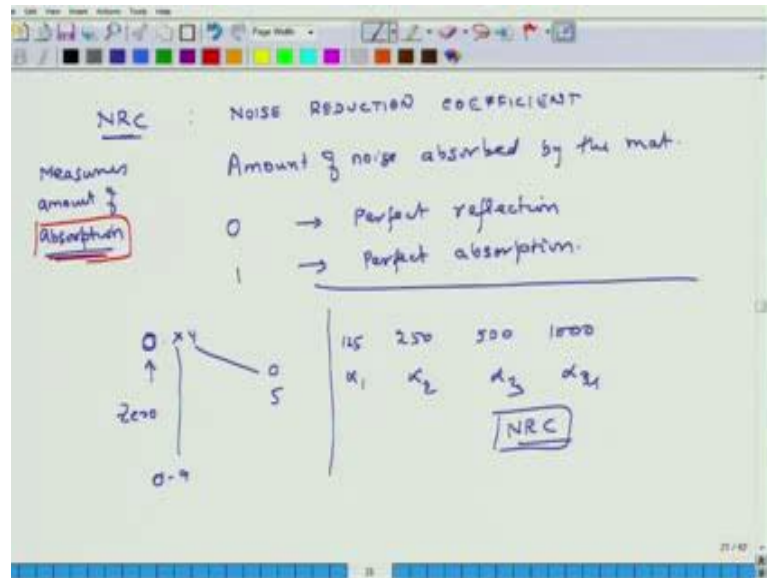 Page Width
NRC : NOISE REDUCTION COEFFICIENT
Measures amount of absorption
Amount of noise absorbed by the mat.
0 → Perfect reflection
1 → Perfect absorption.
0. X Y
Zero
0-9
0
5
125 250 500 1000
α1 α2 α3 α4
NRC